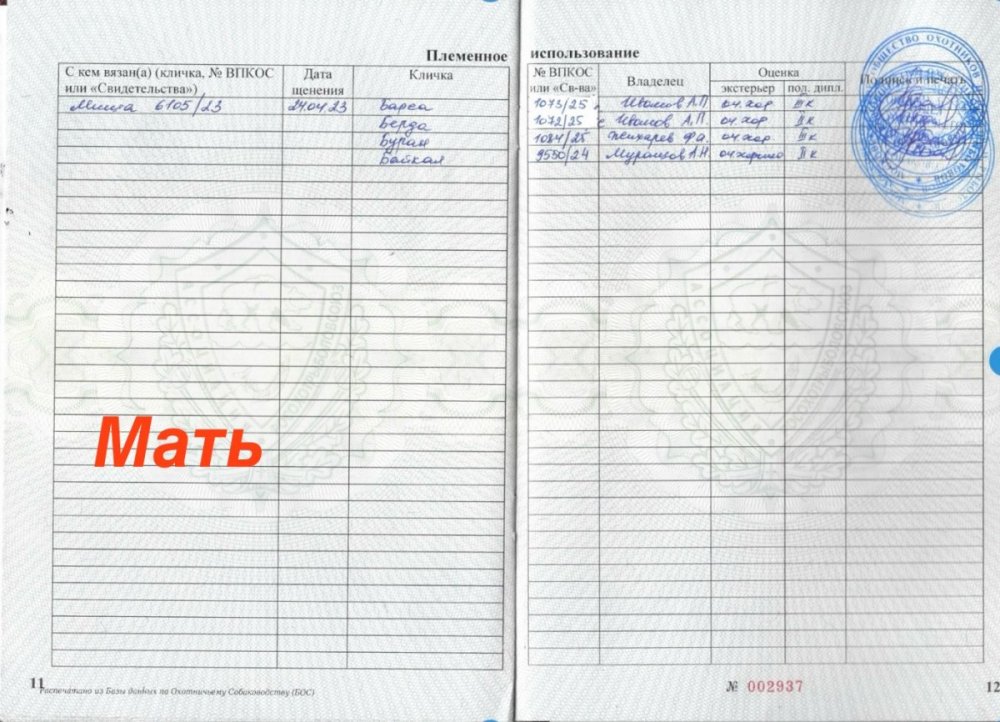 Племенное использование
С кем вязан(а) (кличка, № ВПКОС или «Свидетельства») Дата щенения Кличка № ВПКОС или «Св-ва» Владелец Оценка экстерьер пол. дипл. Подпись и печать
Миша 6105/23 24.04.23 Барса 1073/25 Иванов А.П оч.хор III к
Берда 1072/25 Иванов А.П. оч хор II к
Буран 1084/25 оч хор II к
Байкал 9550/24 оч хорошо II к
Мать
11
Распечатано из Базы данных по Охотничьему Собаководству (БОС)
№ 002937
12